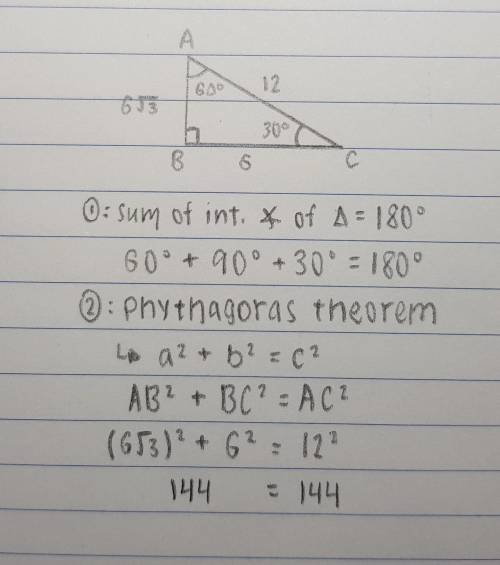 A
60° 12
6√3
30°
B 6 C
①: sum of int. ∡ of Δ = 180°
60° + 90° + 30° = 180°
②: phythagoras theorem
↳ a² + b² = c²
AB² + BC² = AC²
(6√3)² + 6² = 12²
144 = 144